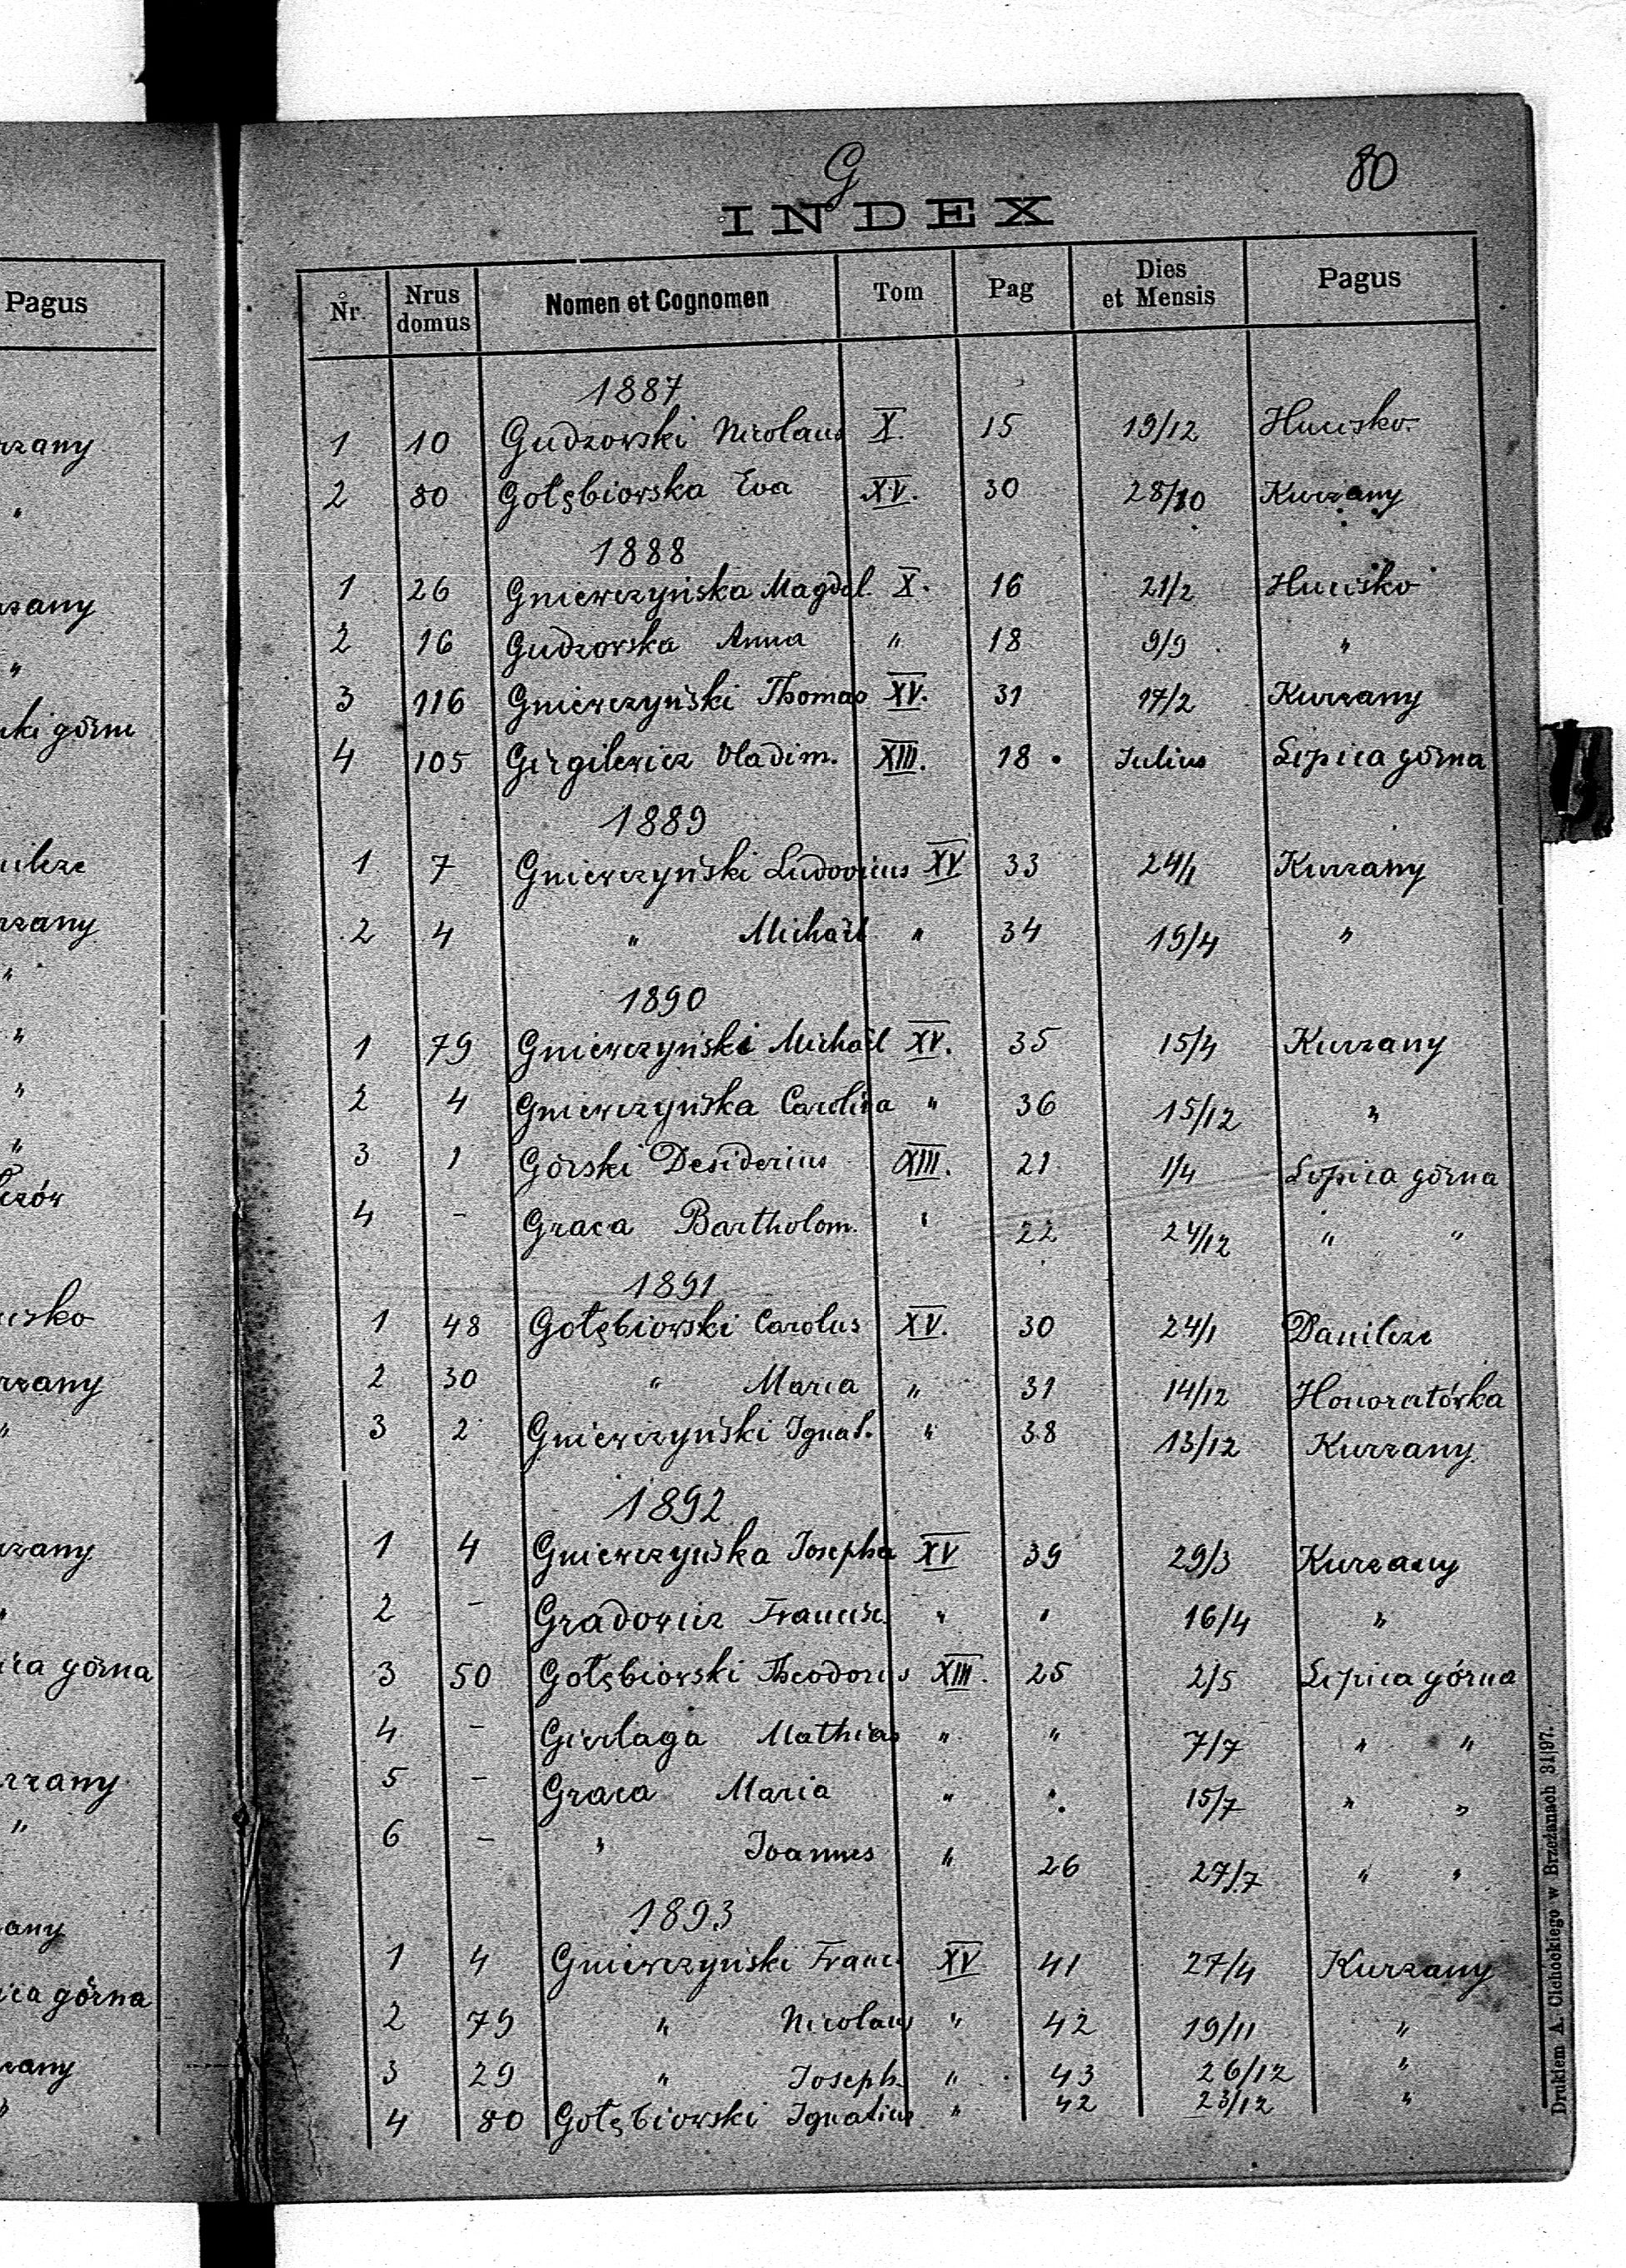 G
80
INDEX
Nr. Nrus domus Nomen et Cognomen Tom Pag Dies et Mensis Pagus
1887
1 10 Gudzowski Nicolaus X. 15 19/12 Hucisko.
2 80 Gołębiowska Eva XV. 30 28/10 Kurzany
1888
1 26 Gniewczyńska Magdal. X. 16 21/2 Hucisko
2 16 Gudzowska Anna " 18 9/9 "
3 116 Gniewczyński Thomas XV. 31 17/2 Kurzany
4 105 Girgilewicz Vladim. XIII. 18 Julius Lipica górna
1889
1 7 Gniewczyński Ludovicus XV 33 24/1 Kurzany
2 4 " Michaël " 34 19/4 "
1890
1 79 Gniewczyński Michaël XV. 35 15/4 Kurzany
2 4 Gniewczyńska Carolina " 36 15/12 "
3 1 Górski Desiderius XIII. 21 1/4 Lipica górna
4 - Graca Bartholom. " 22 24/12 " "
1891
1 48 Gołębiowski Carolus XV. 30 24/1 Danilcze
2 30 " Maria " 31 14/12 Honoratówka
3 2 Gniewczyński Ignat. " 38 13/12 Kurzany
1892
1 4 Gniewczyńska Josepha XV 39 29/3 Kurzany
2 - Gradowicz Francisc. " " 16/4 "
3 50 Gołębiowski Theodorus XIII. 25 2/5 Lipica górna
4 - Gierlaga Mathias " " 7/7 " "
5 - Graca Maria " " 15/7 " "
6 - " Joannes " 26 27/7 " "
1893
1 4 Gniewczyński Franc. XV 41 27/4 Kurzany
2 79 " Nicolaus " 42 19/11 "
3 29 " Joseph. " 43 26/12 "
4 80 Gołębiowski Ignatius " 42 23/12 "
Drukiem A. Cichockiego w Brzeżanach 31|97.
Pagus
górna
górna